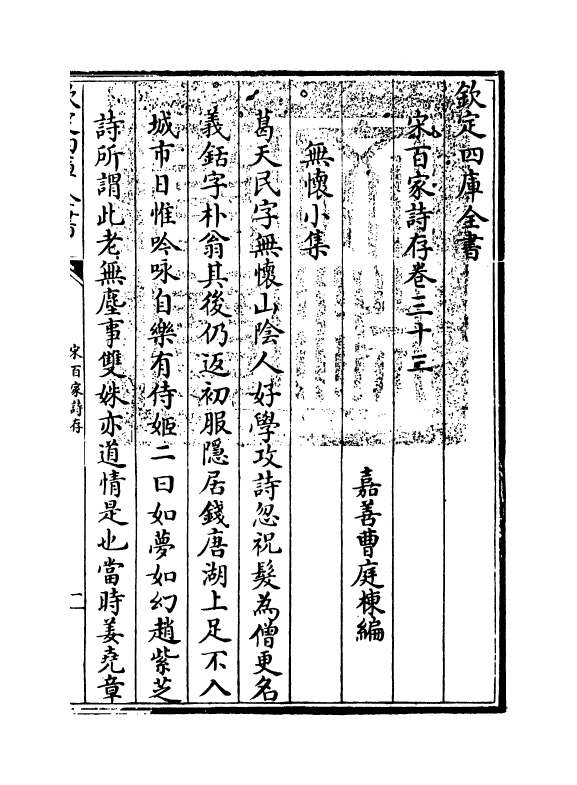 欽定四庫全書
宋百家詩存卷三十三
嘉善曹庭棟編
無懷小集
葛天民字無懷山陰人好學攻詩忽祝髮為僧更名
義銛字朴翁其後仍返初服隱居錢唐湖上足不入
城市日惟吟咏自樂有侍姬二曰如夢如幻趙紫芝
詩所謂此老無塵事雙姝亦道情是也當時姜堯章
欽定四庫全書
宋百家詩存